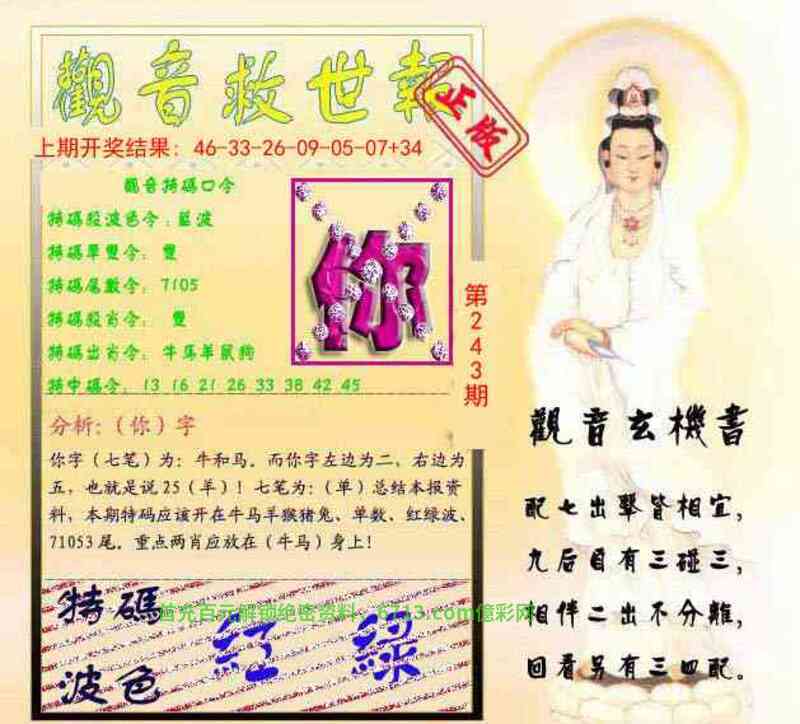 觀音救世報
正版
上期开奖结果：46-33-26-09-05-07+34
觀音特碼口令
特碼殺波色令：藍波
特碼單雙令：雙
特碼尾數令：7105
特碼殺肖令：雙
特碼出肖令：牛马羊鼠狗
特中碼令：13 16 21 26 33 38 42 45
你
第243期
分析:（你）字
你字（七笔）为：牛和马。而你字左边为二，右边为
五，也就是说25（羊）！七笔为：（单）总结本报资
料，本期特码应该开在牛马羊猴猪兔、单数、红绿波、
71053尾。重点两肖应放在（牛马）身上！
特碼
波色
紅 綠
首充百元解锁绝密资料：6713.com億彩网
觀音玄機書
配七出擊皆相宜，
九后目有三碰三，
相伴二出不分離，
回看另有三四配。